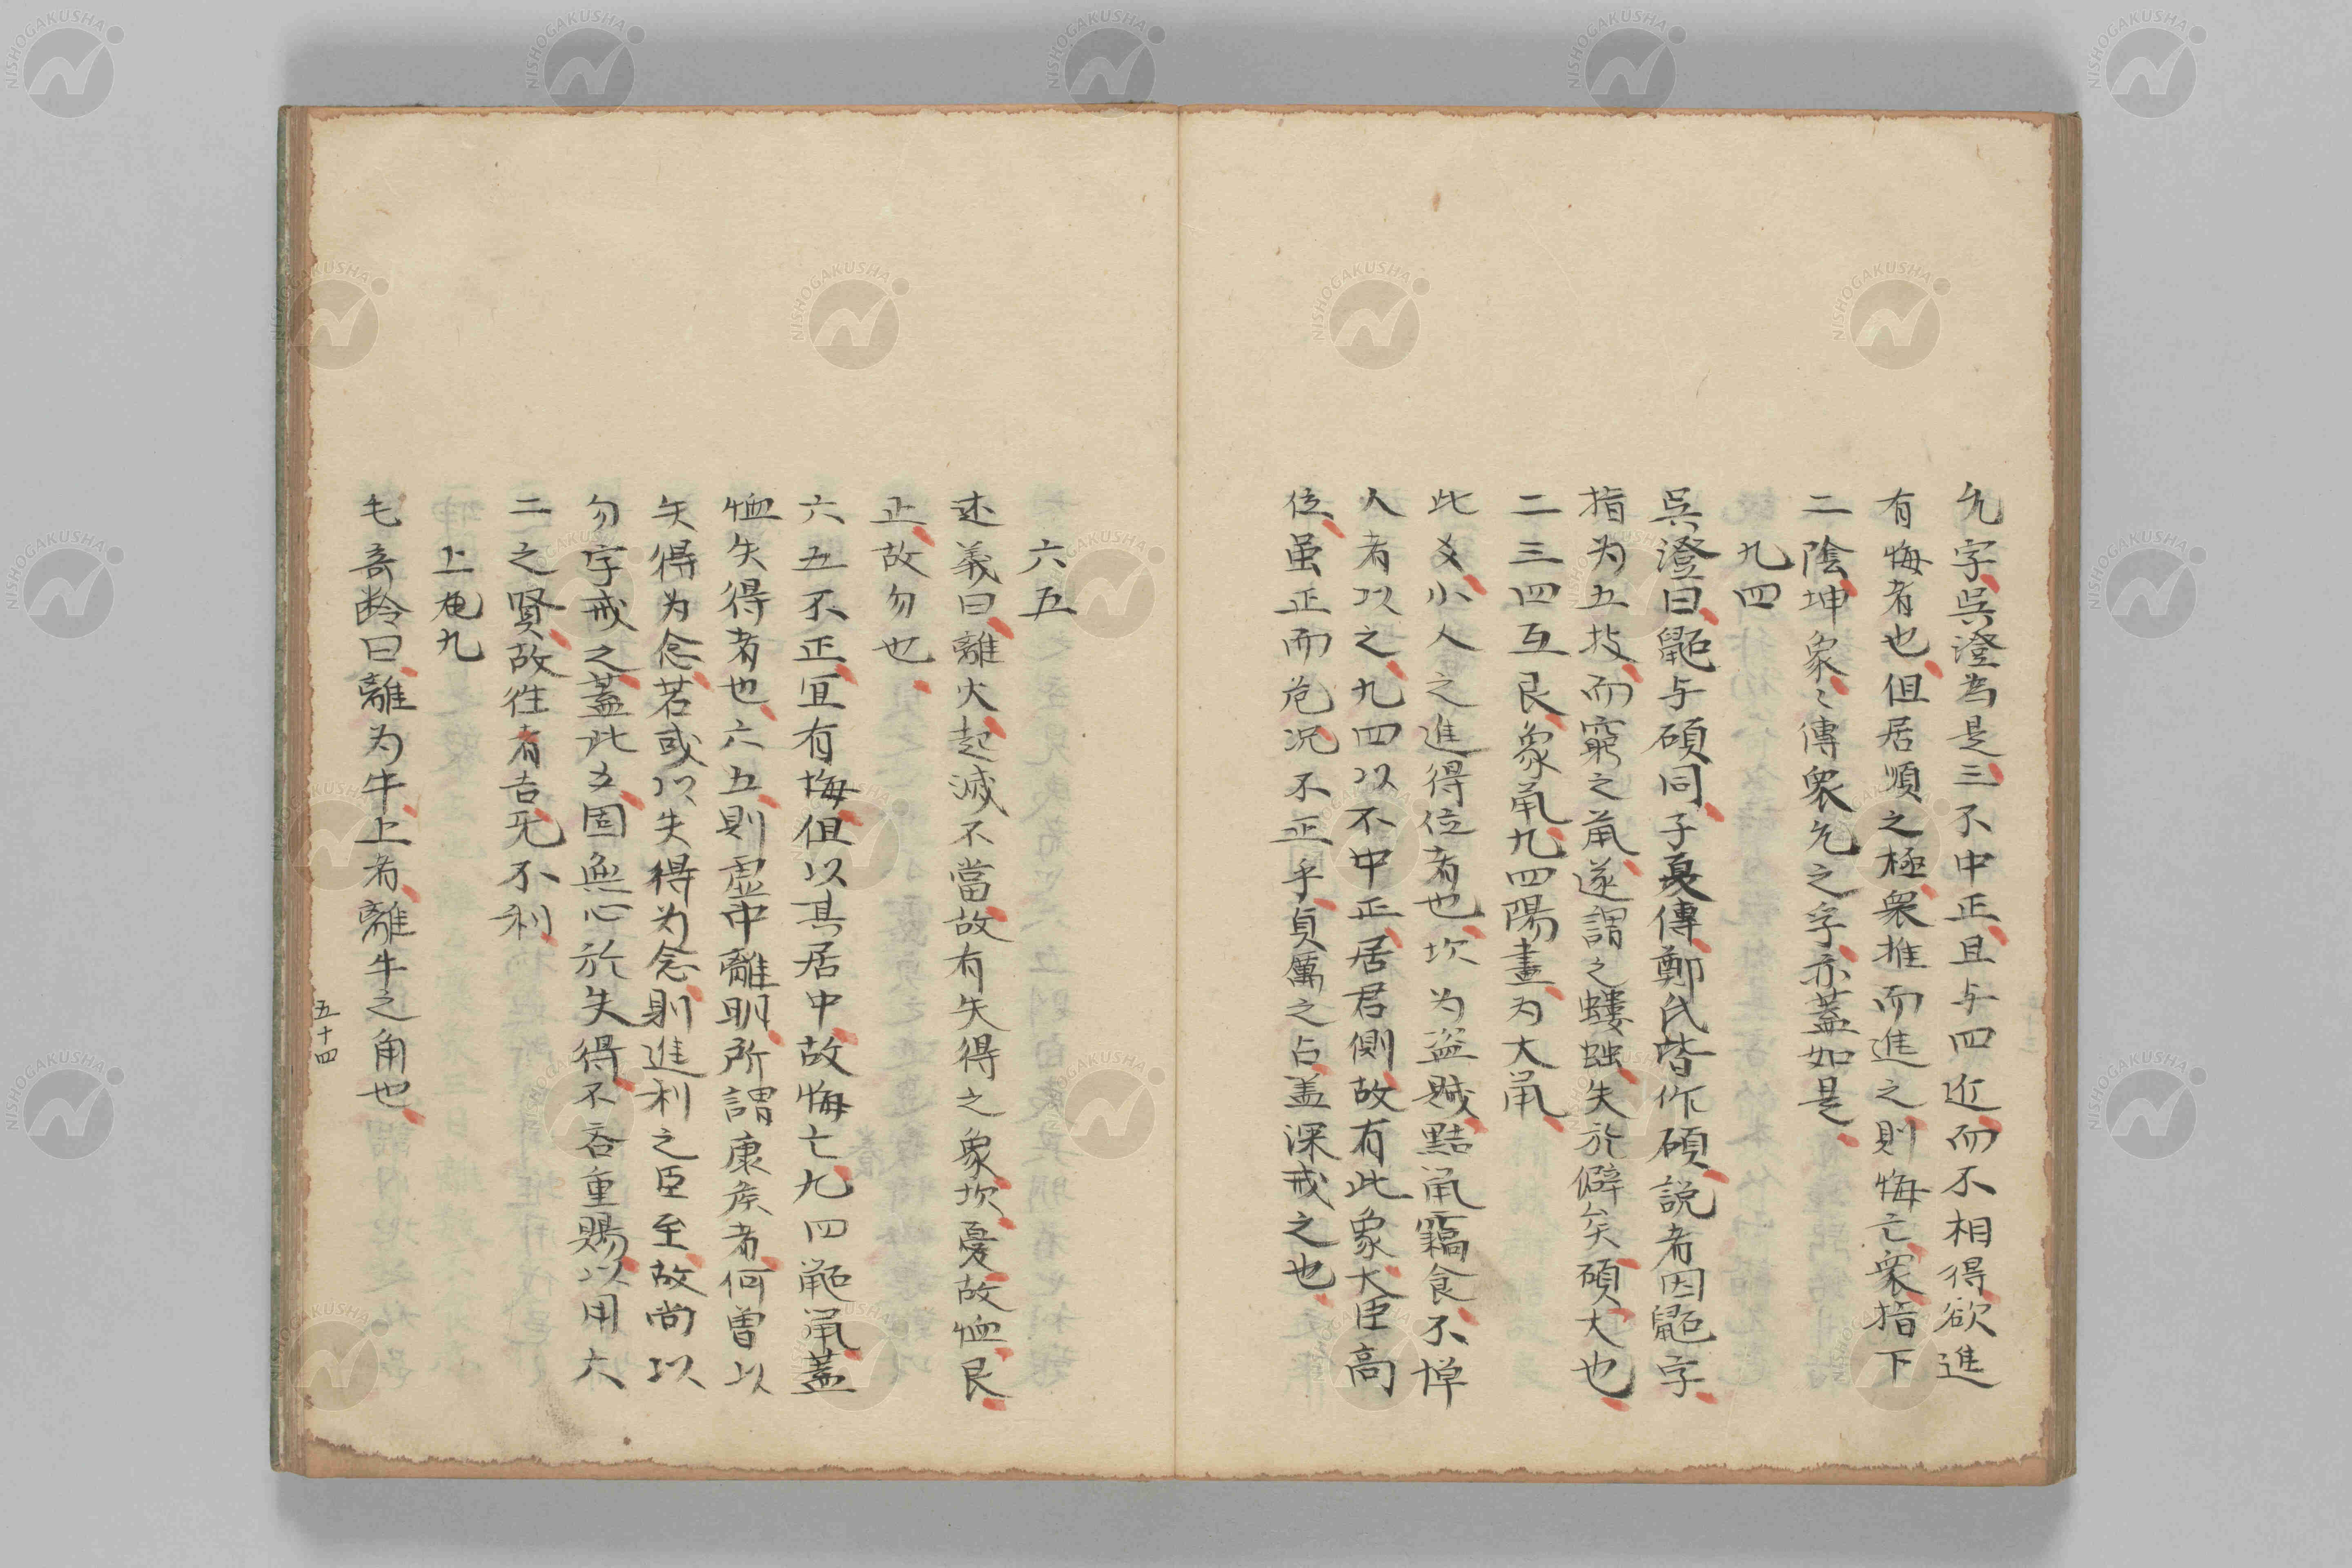 允字吳澄為是三不中正且与四近而不相得欲進
有悔者也但居順之極衆推而進之則悔亡衆指下
二陰坤象〻傳衆允之孚亦蓋如是
九四
吳澄曰鼫与碩同子夏傳鄭氏皆作碩説者因鼫字
指为五技而窮之鼠遂謂之螻蛄失於僻矣碩大也
二三四互艮象鼠九四陽畫为大鼠
此爻小人之進得位者也坎为盗賊黠鼠竊食不憚
人者以之九四以不中正居君側故有此象大臣高
位虽正而危况不正乎貞厲之占盖深戒之也
六五
述義曰離火起滅不當故有失得之象坎憂故恤艮
止故勿也
六五不正宜有悔但以其居中故悔亡九四鼫鼠蓋
恤失得者也六五則虚中離明所謂康侯者何曽以
失得为念若或以失得为念則進利之臣至故尚以
勿字戒之蓋此爻固無心於失得不吝重賜以用六
二之賢故徃有吉无不利
上九
毛奇齡曰離为牛上者離牛之角也
五十四
NISHOGAKUSHA